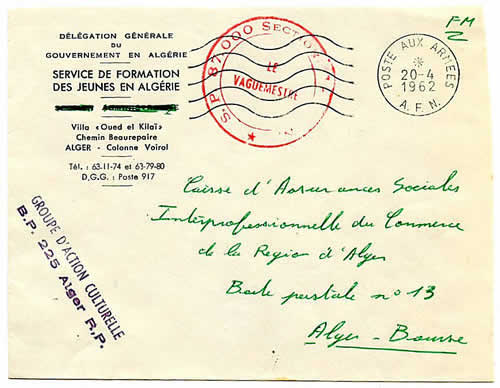 DÉLÉGATION GÉNÉRALE
DU
GOUVERNEMENT EN ALGÉRIE
SERVICE DE FORMATION
DES JEUNES EN ALGÉRIE
Villa «Oued el Kilaï»
Chemin Beaurepaire
ALGER - Colonne Voirol
Tél. : 63-11-74 et 63-79-80
D.G.G. : Poste 917
S.P. 87.000 SECTION
LE
VAGUEMESTRE
FM
POSTE AUX ARMÉES
20-4
1962
A.F.N.
GROUPE D'ACTION CULTURELLE
B.P. 225 Alger R.P.
Caisse d'Assurances Sociales
Interprofessionnelle du Commerce
de la Region d'Alger
Boite postale n° 13
Alger - Bourse